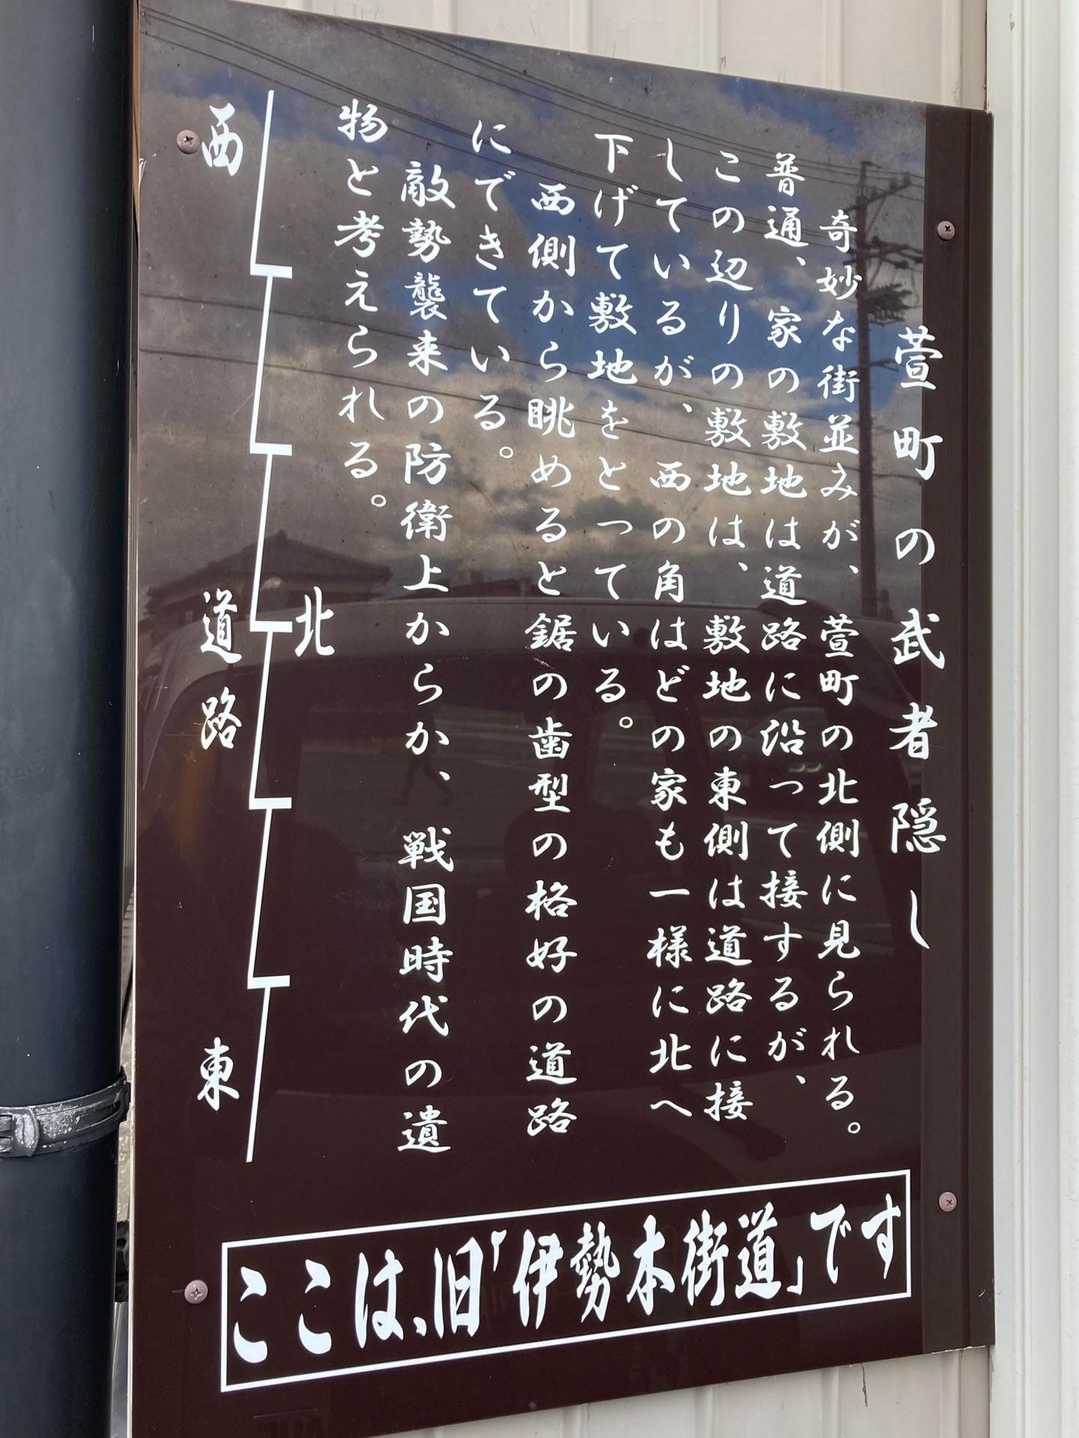 萱町の武者隠し
奇妙な街並みが、萱町の北側に見られる。
普通、家の敷地は道路に沿って接するが、
この辺りの敷地は、敷地の東側は道路に接
しているが、西の角はどの家も一様に北へ
下げて敷地をとっている。
西側から眺めると鋸の歯型の格好の道路
にできている。
敵勢襲来の防衛上からか、戦国時代の遺
物と考えられる。
北
西
道路
東
ここは、旧「伊勢本街道」です